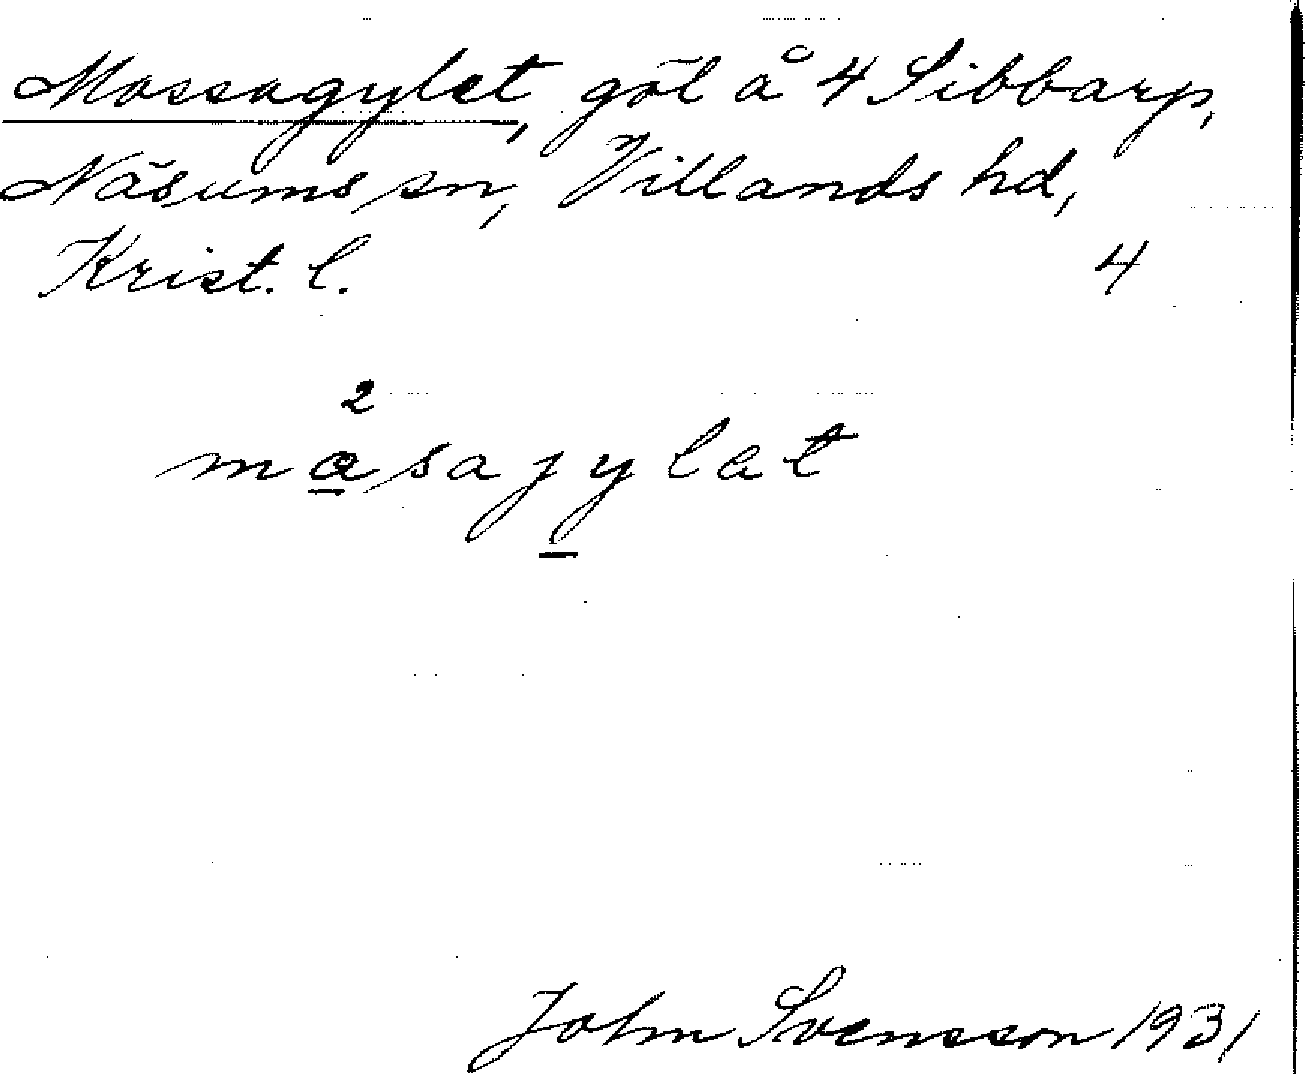 Mossagylet, göl å 4 Sibbarp,
Näsums sn, Villands hd,
Krist. l. 4
2
måsajylat
John Svensson 1931